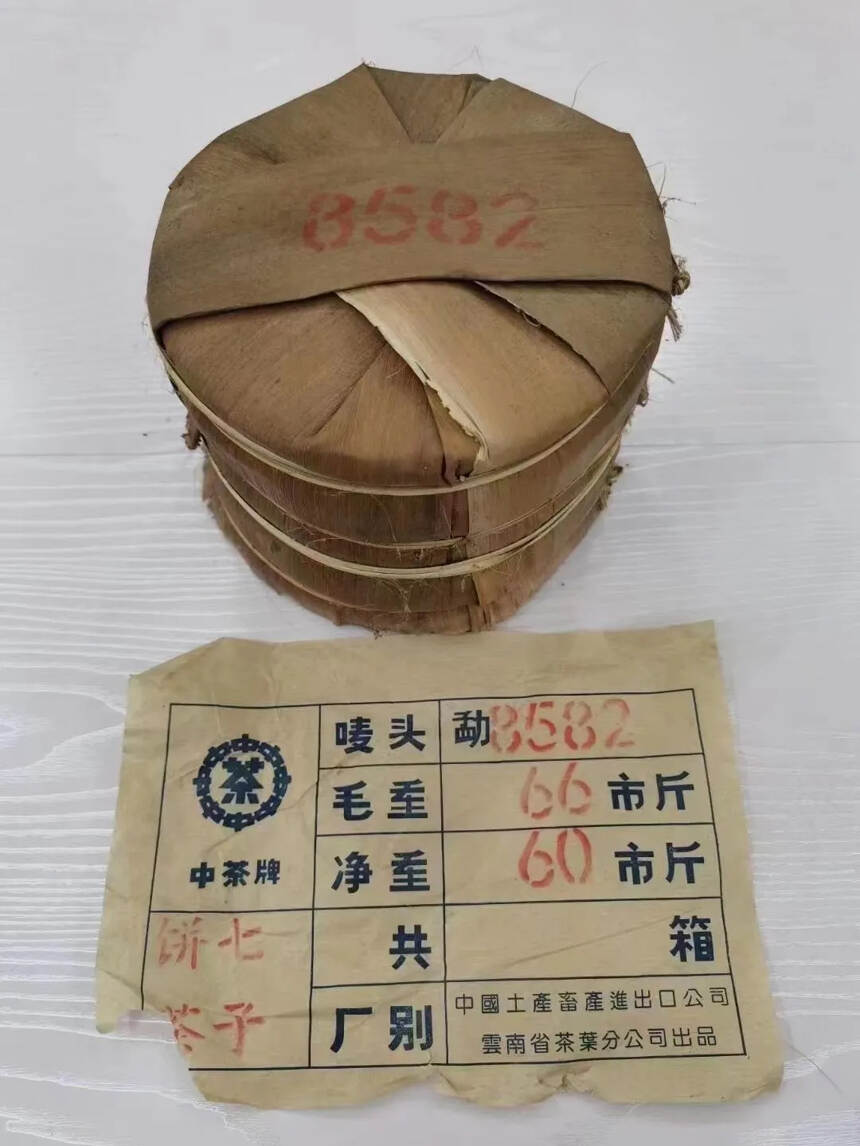 8582
茶
中茶牌
唛头 勐8582
毛重 66市斤
净重 60市斤
共 箱
厂别 中國土產畜產進出口公司
雲南省茶葉分公司出品
饼七
茶子